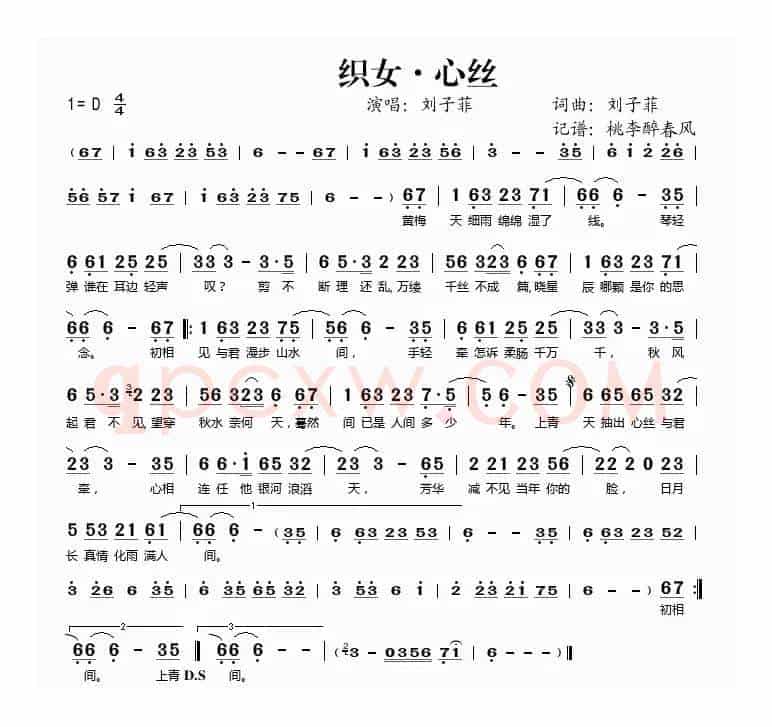 织女·心丝
1=D 4/4 演唱：刘子菲 词曲：刘子菲
记谱：桃李醉春风
(67 | 1 63 23 53 | 6 - - 67 | 1 63 23 56 | 3 - - 35 | 6 1 2 26 |
56 57 1 67 | 1 63 23 75 | 6 - - ) 67 | 1 63 23 71 | 66 6 - 35 |
黄梅 天 细雨 绵绵 湿了 线。 琴轻
6 61 25 25 | 33 3 - 3·5 | 6 5·3 5 67 | 56 323 6 67 | 1 63 23 71 |
弹 谁在 耳边 轻声 叹？ 剪 不 断 理 还 乱。万缕 千丝 不成 篇，晓星 辰 哪颗 是你 的思
66 6 - 67 ‖: 1 63 23 75 | 56 6 - 35 | 6 61 25 25 | 33 3 - 3·5 |
念。 初相 见 与君 漫步 山水 间， 手轻 牵 怎诉 柔肠 千万 千， 秋 风
6 5·3 2 23 | 56 323 6 67 | 1 63 23 7·5 | 5 6 - 35 | 6 65 65 32 |
起 君 不 见，里穿 秋水 奈何 天，蓦然 间 已是 人间 多 少 年。上青 天 抽出 心丝 与君
qpcxw.COM
23 3 - 35 | 6 6·1 65 32 | 23 3 - 65 | 2 21 23 56 | 22 2 0 23 |
牵， 心相 连 任 他 银河 浪滔 天， 芳华 减 不见 当年 你的 脸， 日月
1
5 53 21 61 | 66 6 - (35 | 6 63 23 53 | 6 - - 35 | 6 63 23 52 |
长 真情 化雨 满人 间。
3 26 56 35 | 6 35 65 32 | 3 5 6 1 | 2 23 21 75 | 6 - - ) 67 :‖
初相
2 3
66 6 - 35 ‖ 66 6 - - | (3 - 0356 71 | 6 - - - ) ‖
间。 上青 D.S 间。